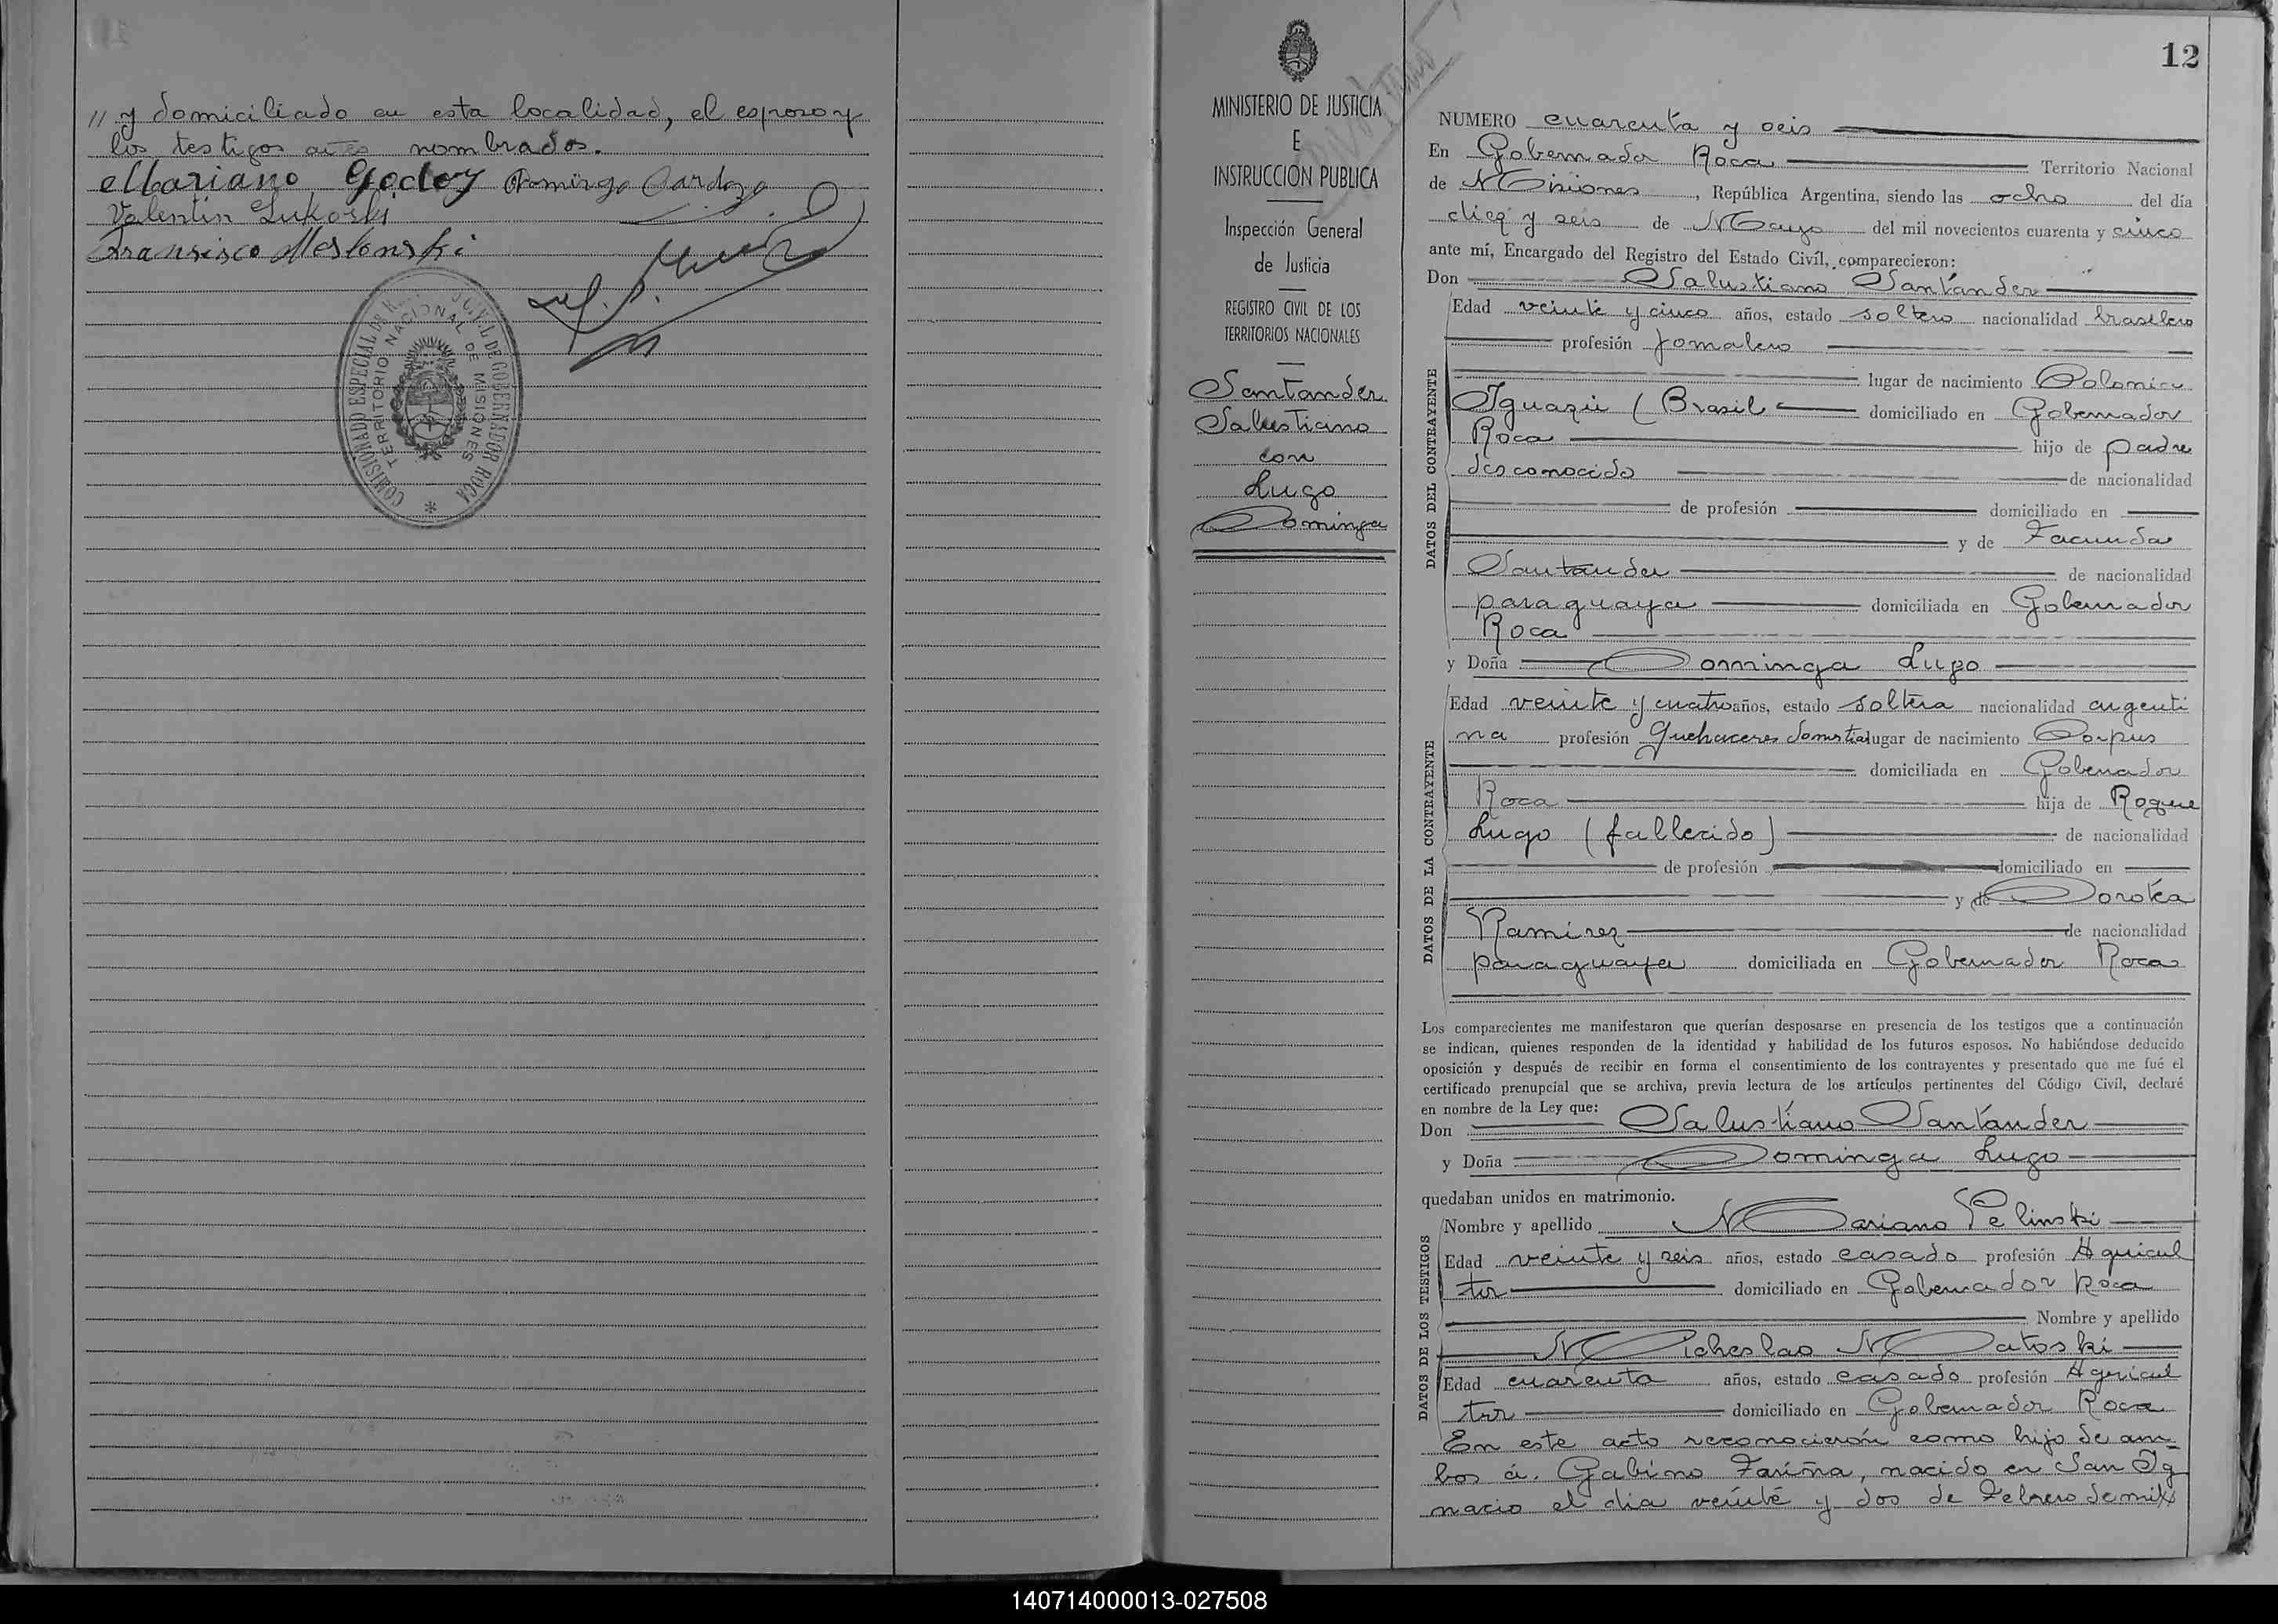 // y domiciliado en esta localidad, el esposo y
los testigos antes nombrados.
Mariano Godoy Domingo Cardozo
Valentin Lukoski
Fransisco Meslonski
COMISIONADO ESPECIAL DE R. CIVIL DE GOBERNADOR ROCA
TERRITORIO NACIONAL DE MISIONES
*
MINISTERIO DE JUSTICIA
E
INSTRUCCION PUBLICA
Inspección General
de Justicia
REGISTRO CIVIL DE LOS
TERRITORIOS NACIONALES
Santander
Salustiano
con
Lugo
Dominga
12
NUMERO cuarenta y seis
En Gobernador Roca Territorio Nacional
de Misiones, República Argentina, siendo las ocho del día
diez y seis de Mayo del mil novecientos cuarenta y cinco
ante mí, Encargado del Registro del Estado Civíl, comparecieron:
Don Salustiano Santander
DATOS DEL CONTRAYENTE
Edad veinte y cinco años, estado soltero nacionalidad brasilero
profesión jornalero
lugar de nacimiento Colonia
Iguazú (Brasil domiciliado en Gobernador
Roca hijo de padre
desconocido de nacionalidad
de profesión domiciliado en
y de Facunda
Santander de nacionalidad
paraguaya domiciliada en Gobernador
Roca
y Doña Dominga Lugo
DATOS DE LA CONTRAYENTE
Edad veinte y cuatro años, estado soltera nacionalidad argenti
na profesión Quehaceres domstia lugar de nacimiento Corpus
domiciliada en Gobenador
Roca hija de Roque
Lugo (fallecido) de nacionalidad
de profesión domiciliado en
y de Dorotea
Ramirez de nacionalidad
paraguaya domiciliada en Gobernador Roca
Los comparecientes me manifestaron que querían desposarse en presencia de los testigos que a continuación
se indican, quienes responden de la identidad y habilidad de los futuros esposos. No habiéndose deducido
oposición y después de recibir en forma el consentimiento de los contrayentes y presentado que me fué el
certificado prenupcial que se archiva, previa lectura de los artículos pertinentes del Código Civíl, declaré
en nombre de la Ley que:
Don Salustiano Santander
y Doña Dominga Lugo
quedaban unidos en matrimonio.
DATOS DE LOS TESTIGOS
Nombre y apellido Mariano Pelinski
Edad veinte y seis años, estado casado profesión Agricul
tor domiciliado en Gobernador Roca
Nombre y apellido
Micheslao Matoski
Edad cuarenta años, estado casado profesión Agricul
tor domiciliado en Gobernador Roca
En este acto reconocierón como hijo de am-
bos á. Gabino Fariña, nacido en San Ig
nacio el dia veinté y dos de Febrero de mil
140714000013-027508